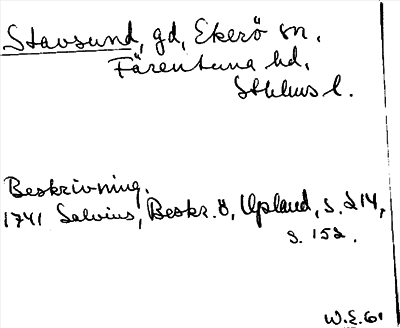 Stavsund, gd, Ekerö sn.
Färentuna hd,
Sthlms l.
Beskrivning.
1741 Salvius, Beskr. ö, Upland, s. 214,
s. 152.
W.E. 61